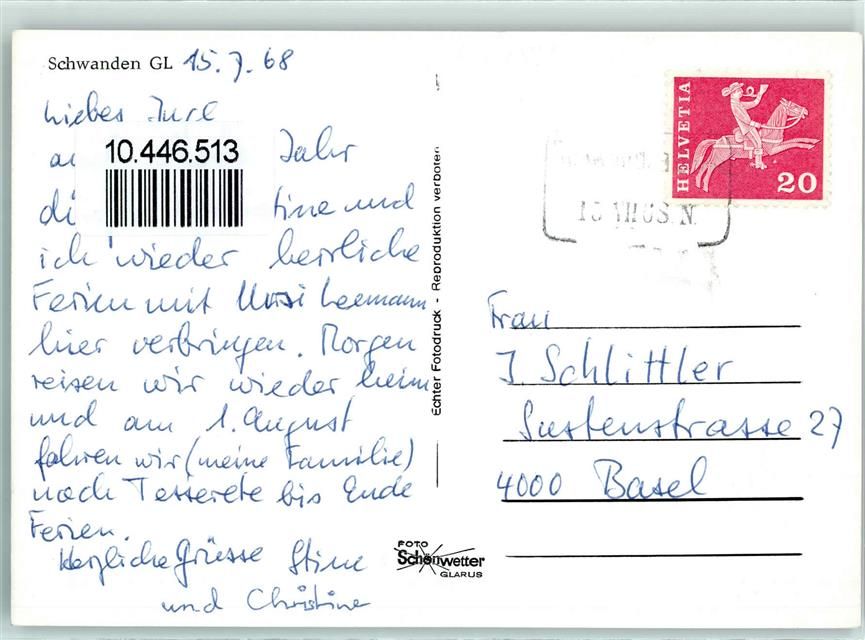 Schwanden GL 15.7.68
Liebes
10.446.513
Jahr
und
ich wieder herrliche
Ferien mit Ursi Leemann
hier verbringen. Morgen
reisen wir wieder heim
und am 1. August
fahren wir (meine Familie)
nach Tesserete bis Ende
Ferien.
Herzliche Grüsse Stine
und Christine
Echter Fotodruck - Reproduktion verboten
FOTO
Schönwetter
GLARUS
HELVETIA
20
Frau
J. Schlittler
Sustenstrasse 27
4000 Basel